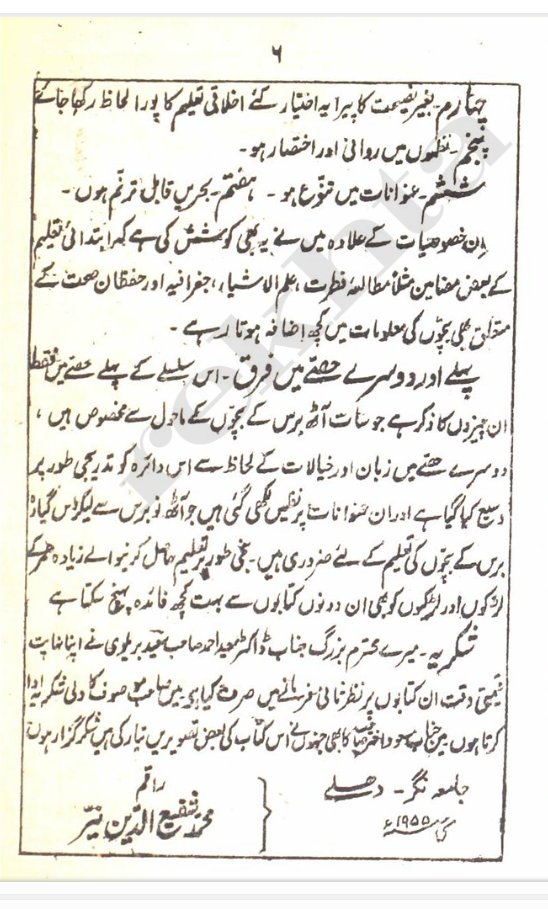 ۶
چہارم۔ بغیر نصیحت کا پیرایہ اختیار کئے اخلاقی تعلیم کا پورا لحاظ رکھا جائے
پنجم۔ نظموں میں روانی اور اختصار ہو۔
ششم۔ عنوانات میں تنوع ہو۔ ہفتم۔ بحریں قابل ترنم ہوں۔
ان خصوصیات کے علاوہ میں نے یہ بھی کوشش کی ہے کہ ابتدائی تعلیم
کے بعض مضامین مثلاً مطالعۂ فطرت، علم الاشیاء، جغرافیہ اور حفظان صحت کے
متعلق بھی بچوں کی معلومات میں کچھ اضافہ ہوتا رہے۔
پہلے اور دوسرے حصّے میں فرق۔ اس سلسلے کے پہلے حصّے میں فقط
ان چیزوں کا ذکر ہے جو سات آٹھ برس کے بچوں کے ماحول سے مخصوص ہیں،
دوسرے حصّے میں زبان اور خیالات کے لحاظ سے اس دائرہ کو تدریجی طور پر
وسیع کیا گیا ہے اور ان عنوانات پر نظمیں لکھی گئی ہیں جو آٹھ نو برس سے لیکر دس گیارہ
برس کے بچوں کی تعلیم کے لئے ضروری ہیں۔ نجی طور پر تعلیم حاصل کرنیوالے زیادہ عمر کے
لڑکوں اور لڑکیوں کو بھی ان دونوں کتابوں سے بہت کچھ فائدہ پہنچ سکتا ہے
شکریہ۔ میرے محترم بزرگ جناب ڈاکٹر سعید احمد صاحب سعید بریلوی نے اپنا نہایت
قیمتی وقت ان کتابوں پر نظر ثانی فرمانے میں صرف کیا ہے میں صاحب موصوف کا دلی شکریہ ادا
کرتا ہوں میں جناب اختر صاحب کا بھی جنہوں نے اس کتاب کی بعض تصویریں تیار کی ہیں شکر گزار ہوں
جامعہ نگر۔ دہلی
۱۹۵۵ء
راقم
محمد شفیع الدین نیّر
rekhta